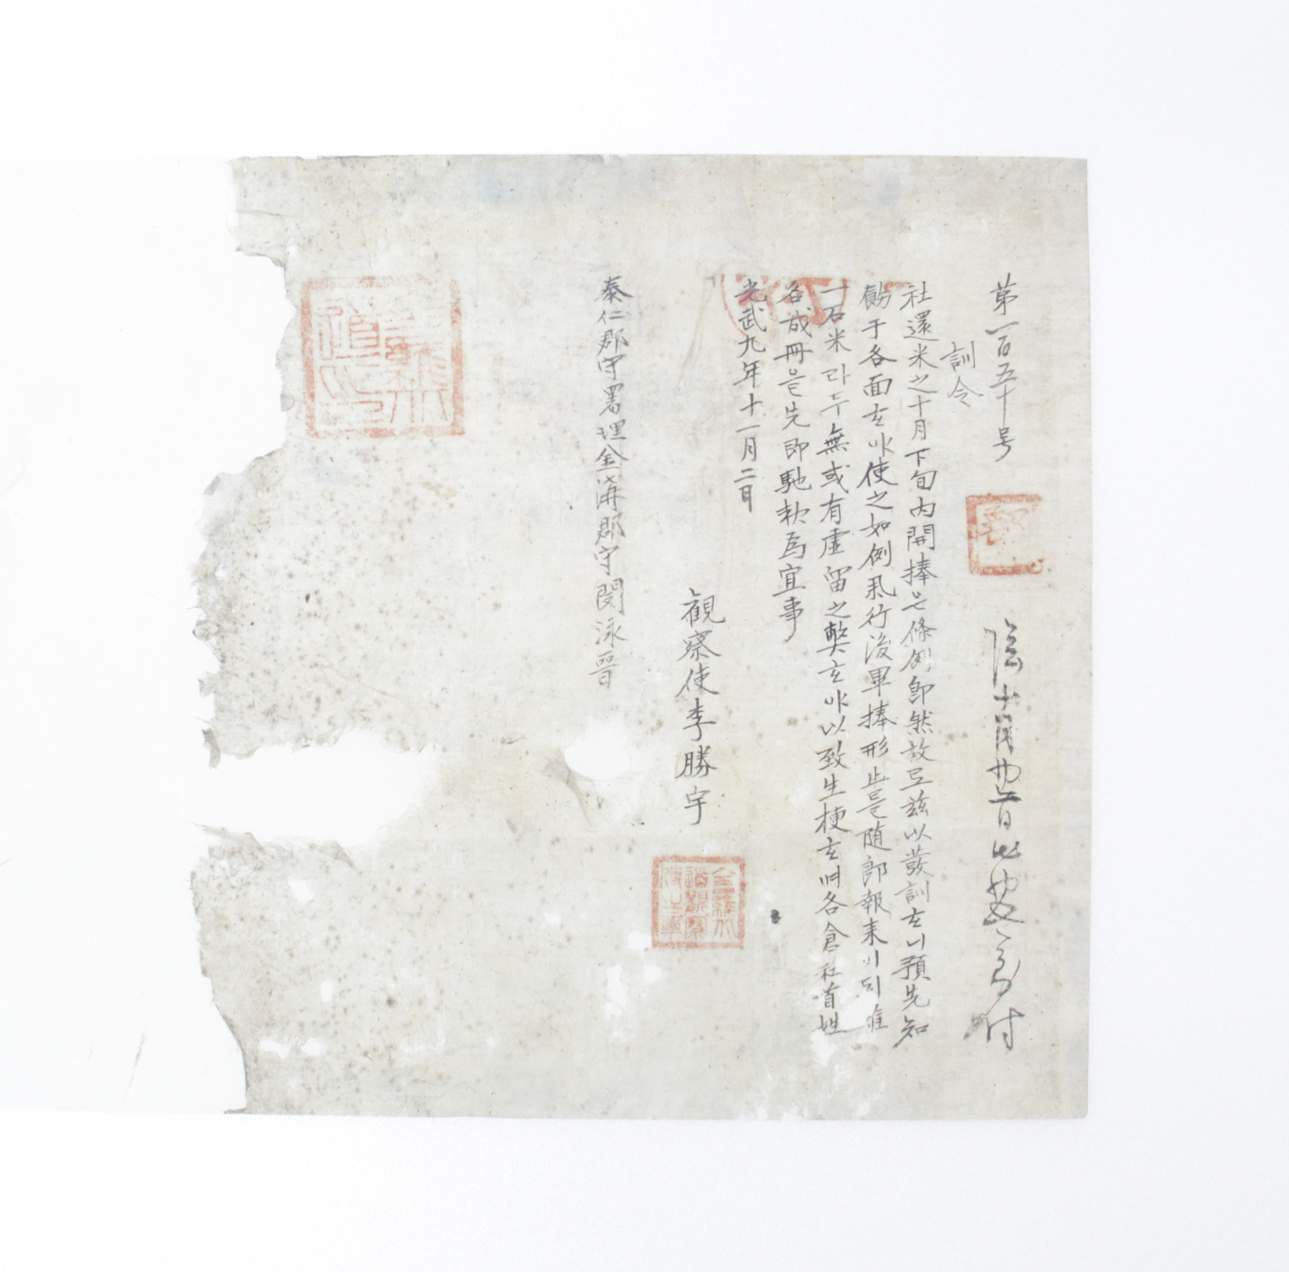 第一百五十号
訓令
社還米之十月下旬内開捧은條例卽然故로玆以發訓하니預先知
飭于各面하야使之如例擧行後畢捧形止를随卽報来이되雖
一石米라두無或有虛留之弊하야以致生梗하며各倉社首姓
各成冊은先卽馳報爲宜事
光武九年十一月二日
観察使李勝宇
泰仁郡守署理金溝郡守閔泳晋